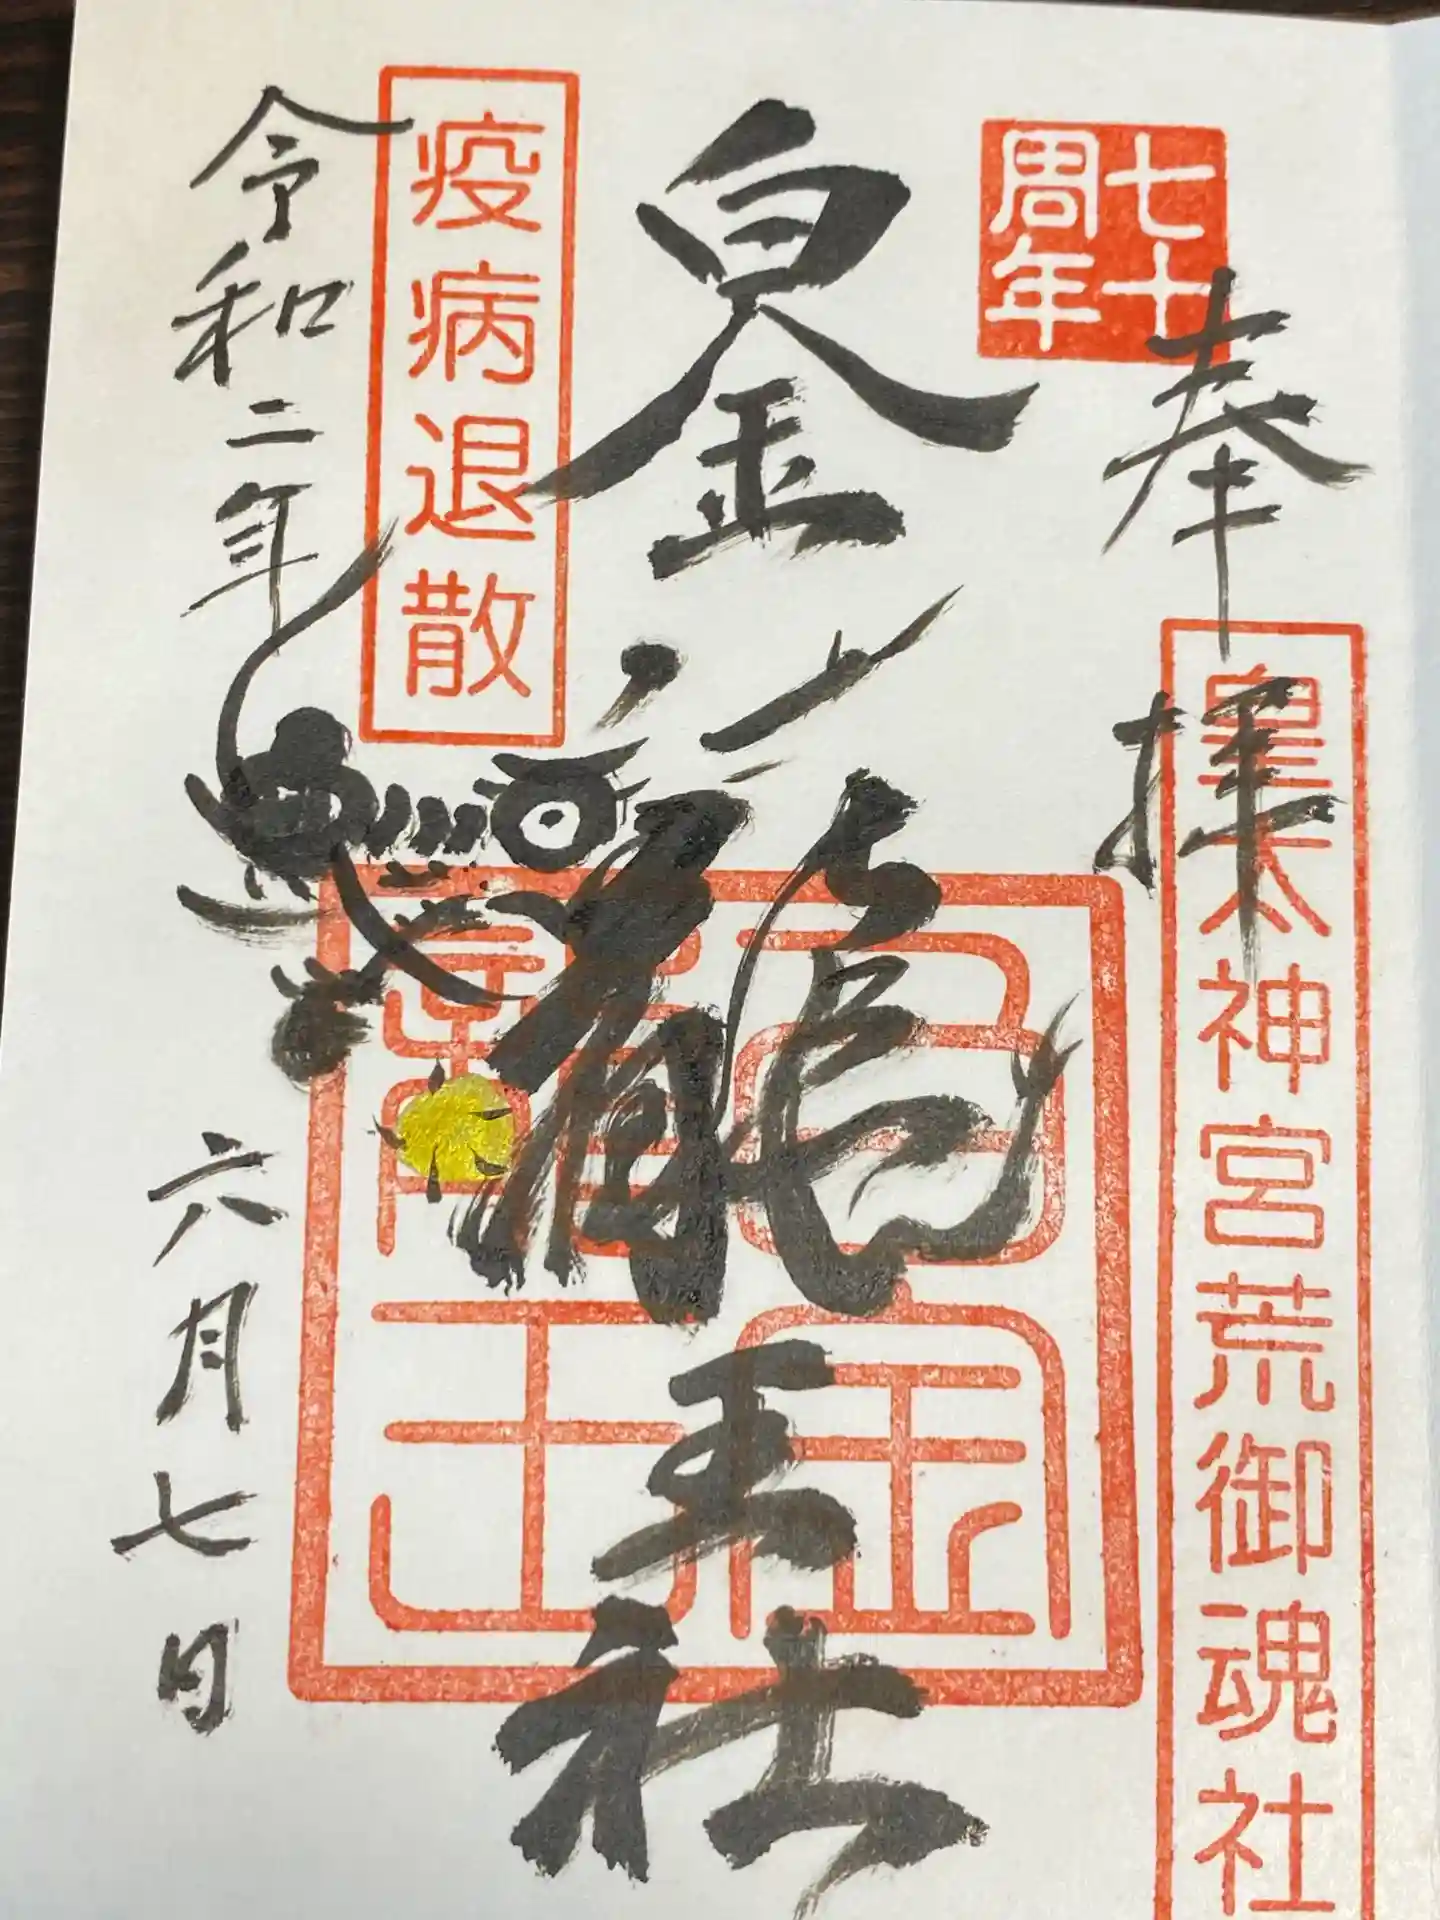 七十
周年
奉拝
皇太神宮荒御魂社
白金龍王社
白金
龍王
疫病退散
令和二年六月七日